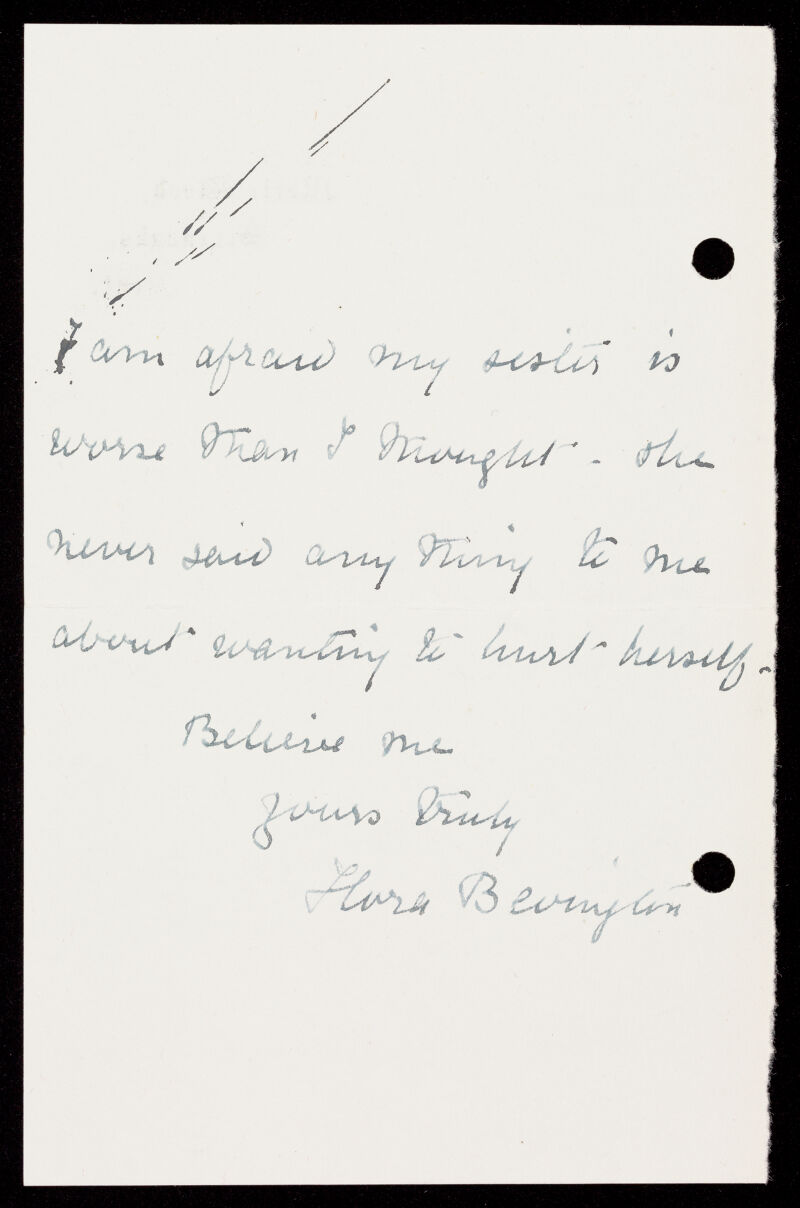 I am afraid my sister is
worse than I thought - she
never said any thing to me
about wanting to hurt herself.
Believe me
yours truly
Flora Bevington